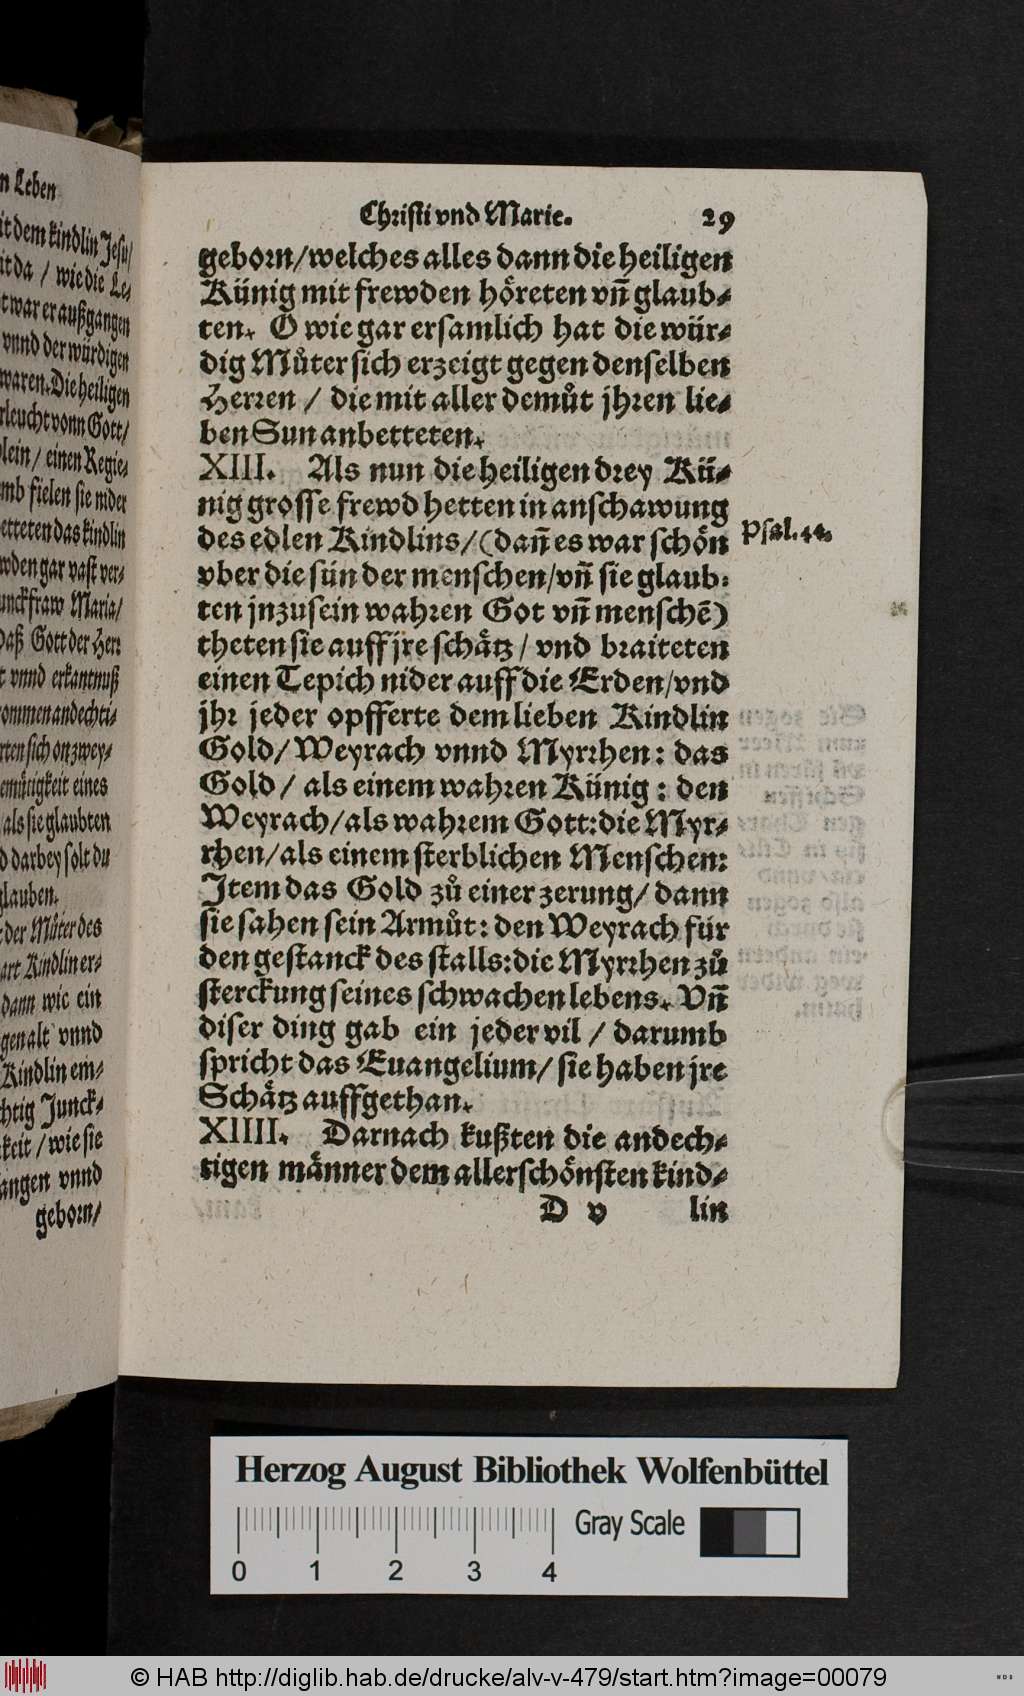 n Leben
it dem kindlin Jesu/
it da / wie die Le⸗
t war er außgangen
vnnd der würdigen
waren. Die heiligen
rleucht vonn Gott/
lein/ einen Regie⸗
mb fielen sie nider
etteten das kindlin
wden gar vast ver⸗
unckfraw Maria/
Daß Gott der Herr
t vnnd erkantnuß
ommen andechti⸗
rten sich on zwey⸗
emütigkeit eines
als sie glaubten
d darbey solt du
glauben.
der Můter des
art Kindlin er⸗
dann wie ein
gen alt vnnd
Kindlin em⸗
chtig Junck⸗
keit / wie sie
angen vnnd
geborn/
Christi vnd Marie. 29
geborn/welches alles dann die heiligen
Künig mit frewden höreten vñ glaub⸗
ten. O wie gar ersamlich hat die wür⸗
dig Můter sich erzeigt gegen denselben
Herren / die mit aller demůt jhren lie⸗
ben Sun anbetteten.
XIII. Als nun die heiligen drey Kü⸗
nig grosse frewd hetten in anschawung
des edlen Kindlins/(dañ es war schön
vber die sün der menschen/vñ sie glaub⸗
ten jnzusein wahren Got vñ menschẽ)
theten sie auff jre schätz / vnd braiteten
einen Tepich nider auff die Erden/vnd
jhr jeder opfferte dem lieben Kindlin
Gold/ Weyrach vnnd Myrrhen: das
Gold / als einem wahren Künig : den
Weyrach/als wahrem Gott:die Myr⸗
rhen/als einem sterblichen Menschen:
Item das Gold zů einer zerung/ dann
sie sahen sein Armůt: den Weyrach für
den gestanck des stalls:die Myrrhen zů
sterckung seines schwachen lebens. Vñ
diser ding gab ein jeder vil / darumb
spricht das Euangelium/ sie haben jre
Schätz auffgethan.
XIIII. Darnach kußten die andech⸗
tigen männer dem allerschönsten kind⸗
D v lin
Psal.44.
Herzog August Bibliothek Wolfenbüttel
Gray Scale
0 1 2 3 4
© HAB http://diglib.hab.de/drucke/alv-v-479/start.htm?image=00079